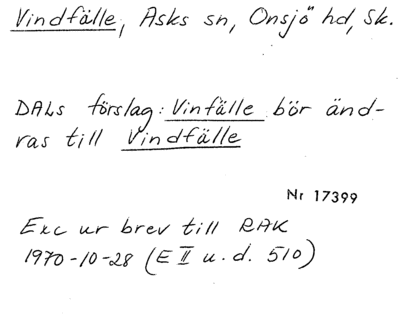 Vindfälle, Asks sn, Onsjö hd, Sk.
DALs förslag: Vinfälle bör änd-
ras till Vindfälle
Nr 17399
Exc ur brev till RAK
1970-10-28 (E II u. d. 510)